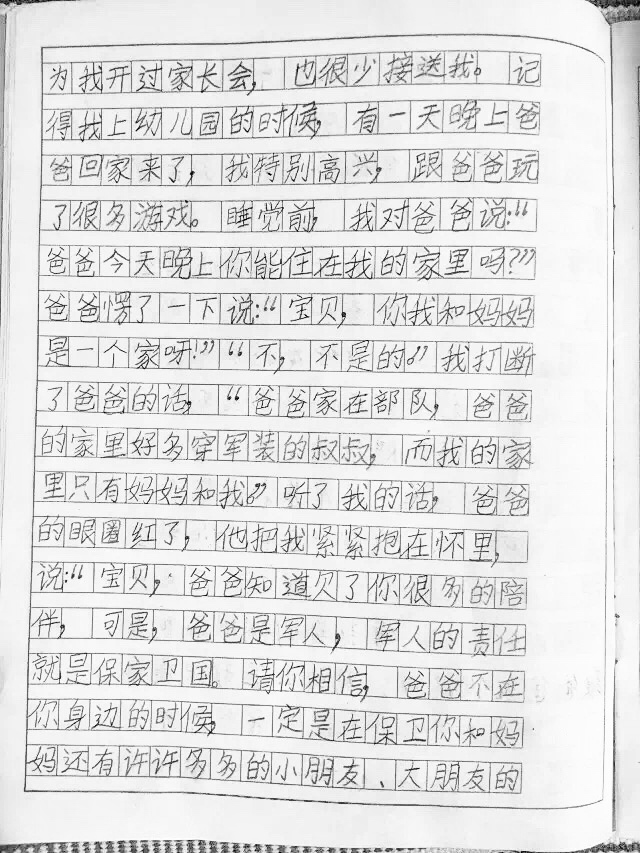 为我开过家长会，也很少接送我。记
得我上幼儿园的时候，有一天晚上爸
爸回家来了，我特别高兴，跟爸爸玩
了很多游戏。睡觉前，我对爸爸说：“
爸爸今天晚上你能住在我的家里吗？”
爸爸愣了一下说：“宝贝，你我和妈妈
是一个家呀！”“不，不是的。”我打断
了爸爸的话，“爸爸家在部队，爸爸
的家里好多穿军装的叔叔，而我的家
里只有妈妈和我。”听了我的话，爸爸
的眼圈红了，他把我紧紧抱在怀里，
说：“宝贝，爸爸知道欠了你很多的陪
伴，可是，爸爸是军人，军人的责任
就是保家卫国。请你相信，爸爸不在
你身边的时候，一定是在保卫你和妈
妈还有许许多多的小朋友、大朋友的